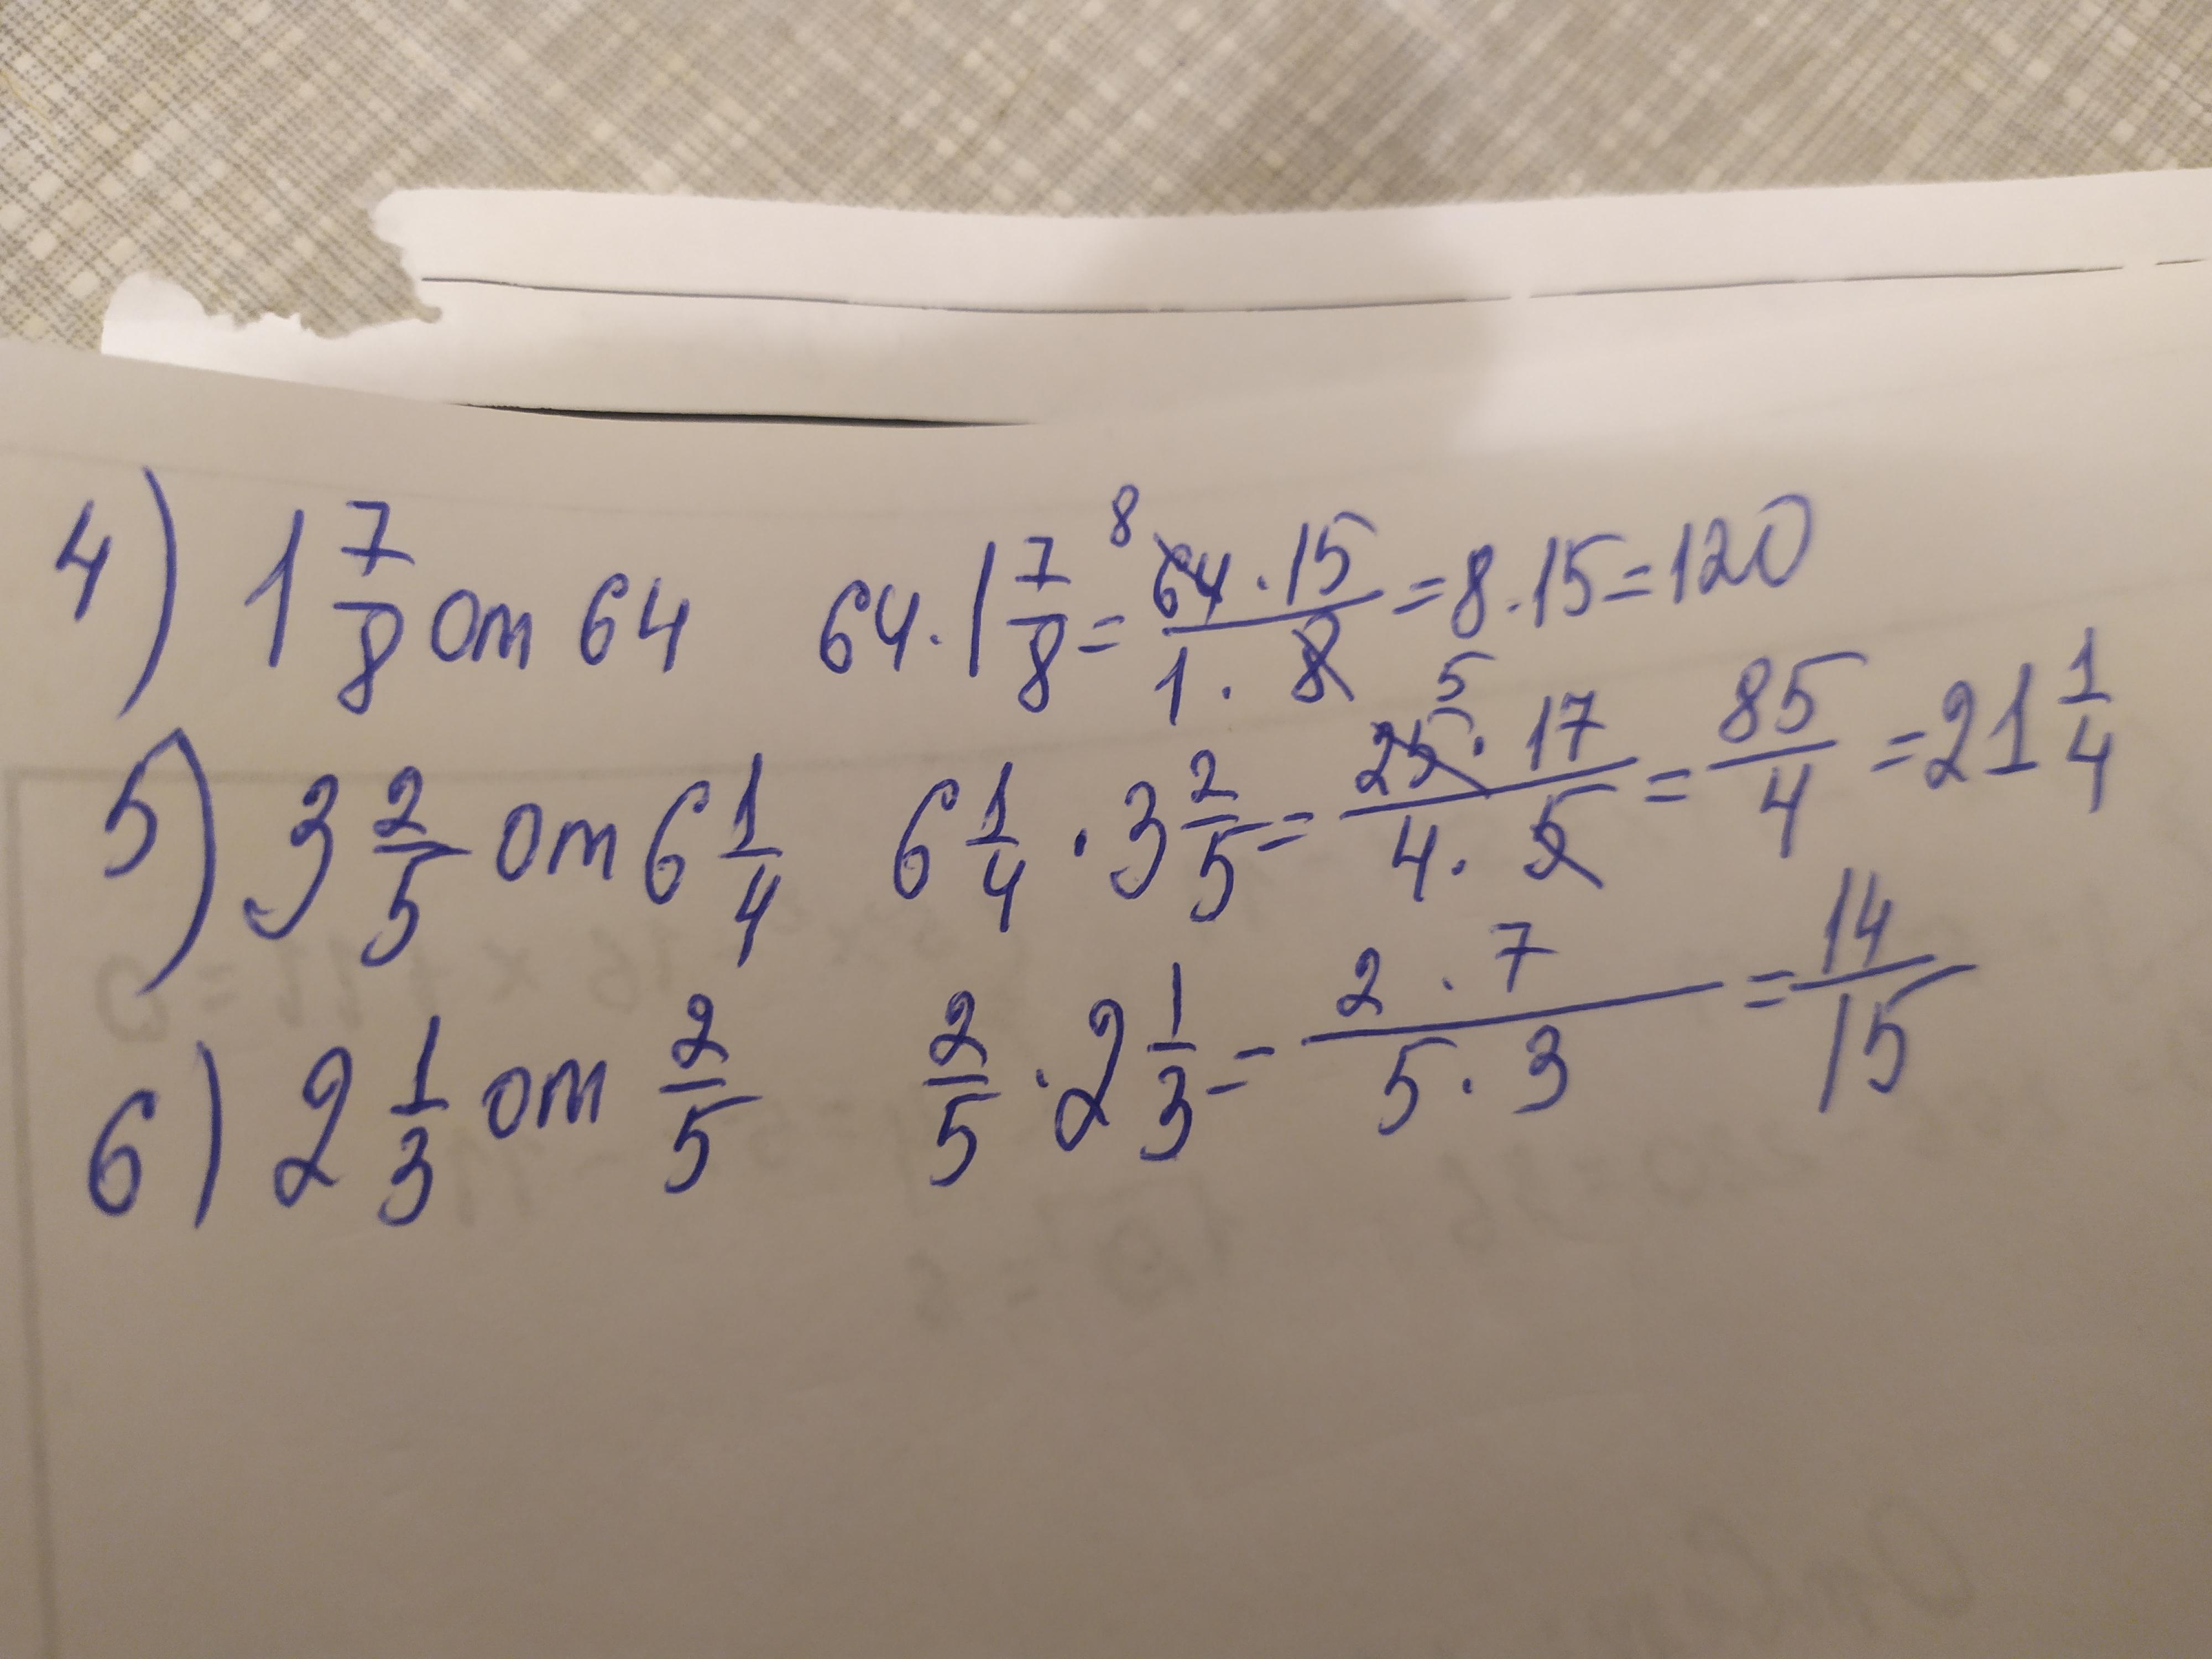 4) 1 7/8 от 64 64 · 1 7/8 = 8 64 · 15 / 1 · 8 = 8 · 15 = 120
5) 3 2/5 от 6 1/4 6 1/4 · 3 2/5 = 5 25 · 17 / 4 · 5 = 85/4 = 21 1/4
6) 2 1/3 от 2/5 2/5 · 2 1/3 = 2 · 7 / 5 · 3 = 14/15